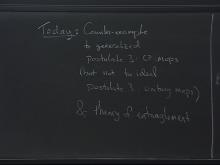 Today: Counter-example
to generalized
postulate 3: CP maps
(but not to ideal
postulate 3: unitary maps)
& theory of entanglement